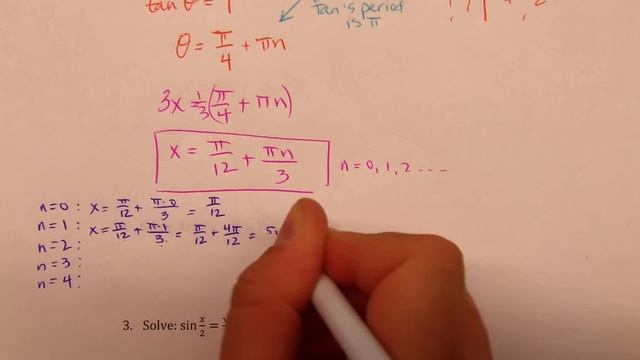 tan θ = 1
Tan's period is π
θ = π/4 + πn
3x = 1/3(π/4 + πn)
x = π/12 + πn/3
n = 0, 1, 2 ...
n=0 : x = π/12 + π·0/3 = π/12
n=1 : x = π/12 + π·1/3 = π/12 + 4π/12 = 5
n=2 :
n=3 :
n=4 :
3. Solve: sin x/2 =